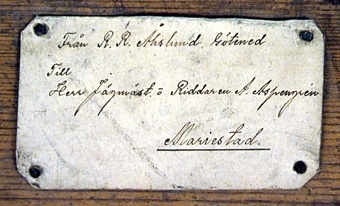 Från R. R. Åkslund, Götened
Till
Herr Jägmäst. o Riddaren A. Aspengrén
Mariestad.